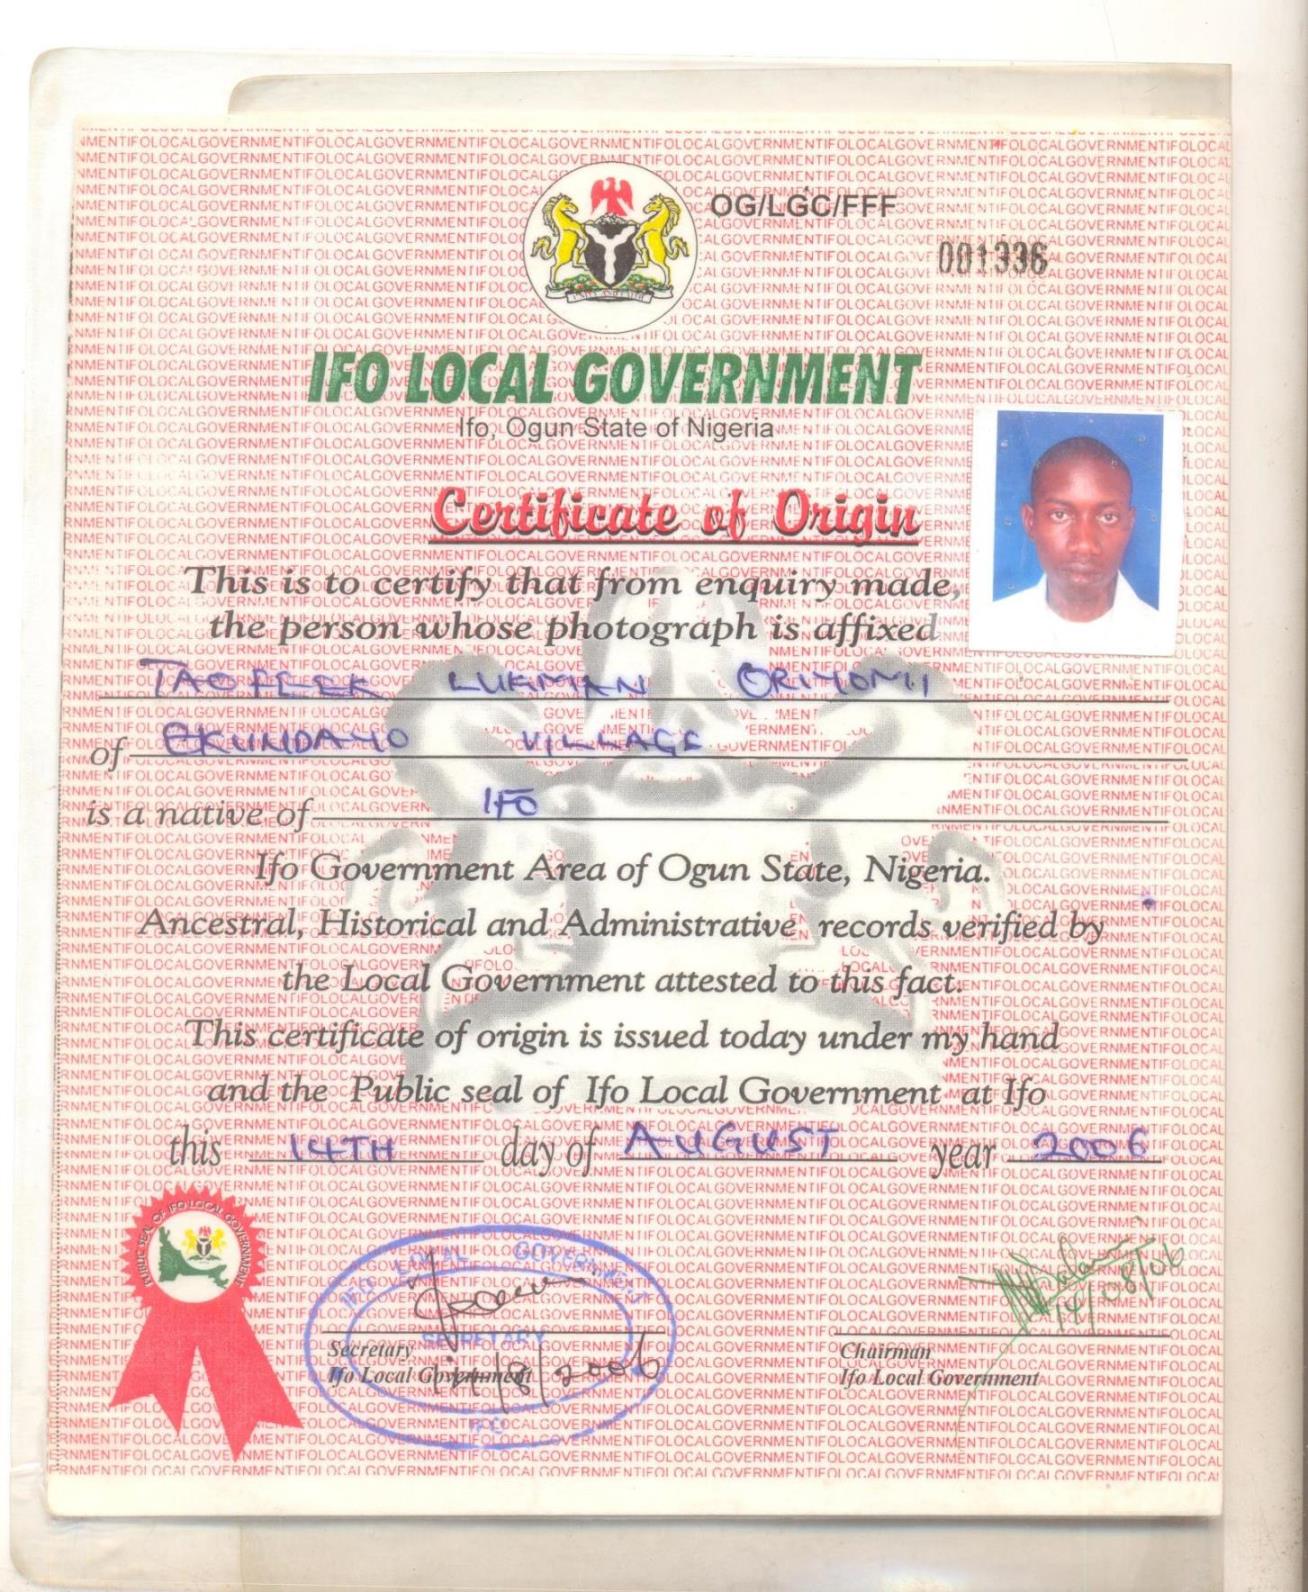 OG/LGC/FFF
001336
IFO LOCAL GOVERNMENT
Ifo, Ogun State of Nigeria
Certificate of Origin
This is to certify that from enquiry made,
the person whose photograph is affixed
TAOFEEK LUKMAN ORIYOMI
of EKUNDAYO VILLAGE
is a native of IFO
Ifo Government Area of Ogun State, Nigeria.
Ancestral, Historical and Administrative records verified by
the Local Government attested to this fact.
This certificate of origin is issued today under my hand
and the Public seal of Ifo Local Government at Ifo
this 14TH day of AUGUST year 2006
PUBLIC SEAL OF IFO LOCAL GOVERNMENT
IFO LOCAL GOVERNMENT
SECRETARY
14/8/2006
IFO
Secretary
Ifo Local Government
14/08/06
Chairman
Ifo Local Government